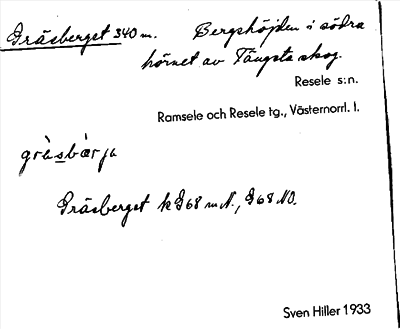 Gräsberget 340 m. Bergshöjden i södra
hörnet av Tängsta skog.
Resele s:n.
Ramsele och Resele tg., Västernorrl. l.
gräsbärja
Gräsberget k G68 m N., G68 NO.
Sven Hiller 1933